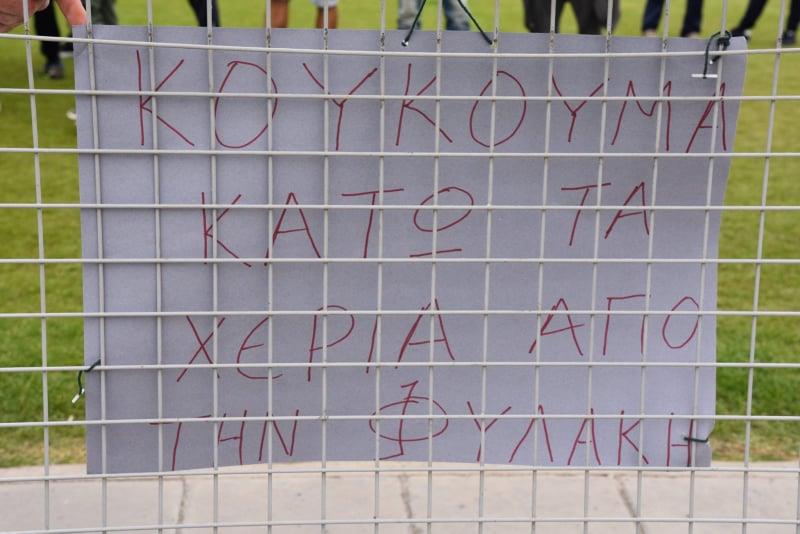 ΚΟΥΚΟΥΜΑ
ΚΑΤΩ ΤΑ
ΧΕΡΙΑ ΑΠΟ
ΤΗΝ ΦΥΛΑΚΗ